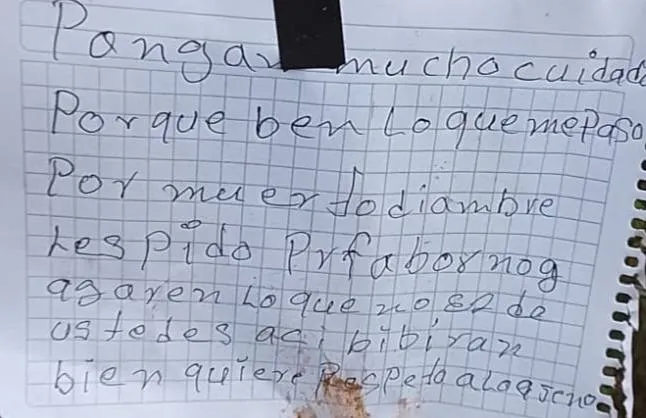 Pongan mucho cuidado
Porque ben Lo que me Paso
Por muerto diambre
Les Pido Prfabor nog
agaren Lo que no es de
ustedes aci bibiran
bien quiere Respeto a Lo ageno